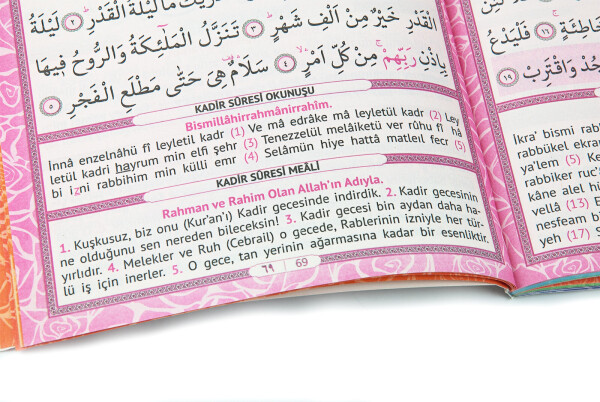 الْقَدْرِ خَيْرٌ مِنْ اَلْفِ شَهْرٍ ﴿٣﴾ تَنَزَّلُ الْمَلٰٓئِكَةُ وَالرُّوحُ فٖيهَا
بِاِذْنِ رَبِّهِمْ مِنْ كُلِّ اَمْرٍ ﴿٤﴾ سَلَامٌ هِيَ حَتّٰى مَطْلَعِ الْفَجْرِ ﴿٥﴾
KADİR SÛRESİ OKUNUŞU
Bismillâhirrahmânirrahîm.
İnnâ enzelnâhü fî leyletil kadr (1) Ve mâ edrâke mâ leyletül kadr (2) Ley
letül kadri hayrum min elfi şehr (3) Tenezzelül melâiketü ver rûhu fî hâ
bi izni rabbihim min külli emr (4) Selâmün hiye hattâ matleil fecr (5)
KADİR SÛRESİ MEÂLİ
Rahman ve Rahim Olan Allah'ın Adıyla.
1. Kuşkusuz, biz onu (Kur'an'ı) Kadir gecesinde indirdik. 2. Kadir gecesinin
ne olduğunu sen nereden bileceksin! 3. Kadir gecesi bin aydan daha ha-
yırlıdır. 4. Melekler ve Ruh (Cebrail) o gecede, Rablerinin izniyle her tür-
lü iş için inerler. 5. O gece, tan yerinin ağarmasına kadar bir esenliktir.
٦٩ 69
فَلْيَدْعُ ﴿١٦﴾
وَاقْتَرِبْ ﴿١٩﴾
Ikra' bismi rabb
rabbükel ekram
ya'lem (5) Ke
rabbike ruc'
yellâ (13) E
nesfeam bi
yeh (16) S